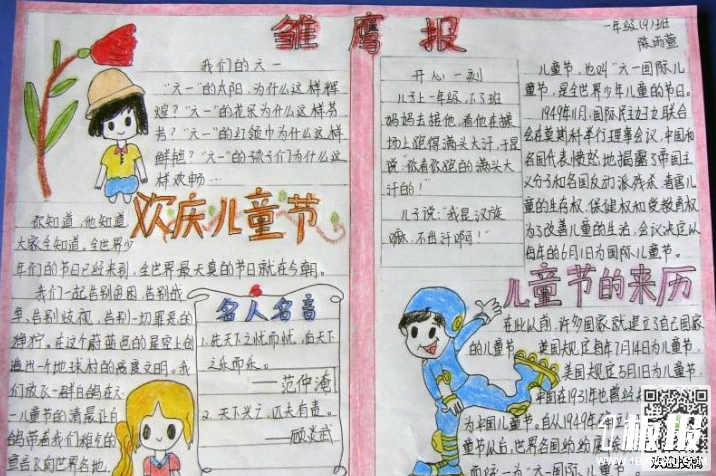 雏鹰报
一年级(9)班
陈雨萱
我们的六一
"六一"的太阳,为什么这样辉
煌?"六一"的花朵为什么这样芬
芳?"六一"的红领巾为什么这样
鲜艳?"六一"的孩子们为什么这
样欢畅…
欢庆儿童节
你知道,他知道,
大家全知道,全世界少
年们的节日已经来到,全世界最天真的节日就在今朝。
我们一起告别贫困,告别战
告别歧视,告别一切罪恶的
狰狞。在这个蔚蓝色的星空上创
造出一个地球村的高度文明。我
们放飞一群白鸽在六
一儿童节的清晨让白
鸽带着我们稚村的
宣言飞向世界各地
名人名言
1.先天下之忧而忧,后天下
之乐而乐。
——范仲淹
2.天下兴亡,匹夫有责。
——顾炎武
开心一刻
儿子上一年级,下了班
妈妈去接他,看他在操
场上跑得满头大汗,于是
说:"你看你跑的满头大
汗的!"
儿子说:"我是汉族
嘛,不出汗啊!"
儿童节,也叫"六一国际儿
童节,是全世界少年儿童的节日。
1949年11月,国际民主妇女联合
会在莫斯科举行理事会议,中国和
各国代表愤怒地揭露了帝国主
义分子和各国反动派残杀、毒害儿
童的生存权、保健权和受教育权
为了改善儿童的生活,会议决定以
每年的6月1日为国际儿童节。
儿童节的来历
在此以前,许多国家就建立了自己国家
的儿童节,英国规定每年7月14日为儿童节,
美国规定5月1日为儿童节,
中国在1931年也曾经
为中国儿童节。自从1949年
童节以后,世界各国纷纷废